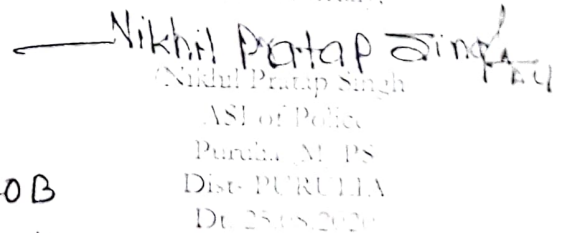 Nikhil Pratap Singh
(Nikhil Pratap Singh
ASI of Police
Purulia (M) PS
OB
Dist- PURULIA
Dt. 25.08.2020